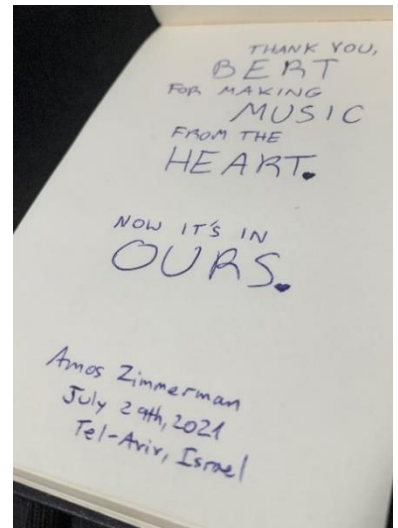 THANK YOU,
BERT
FOR MAKING
MUSIC
FROM THE
HEART.
NOW IT'S IN
OURS.
Amos Zimmerman
July 29th, 2021
Tel-Aviv, Israel